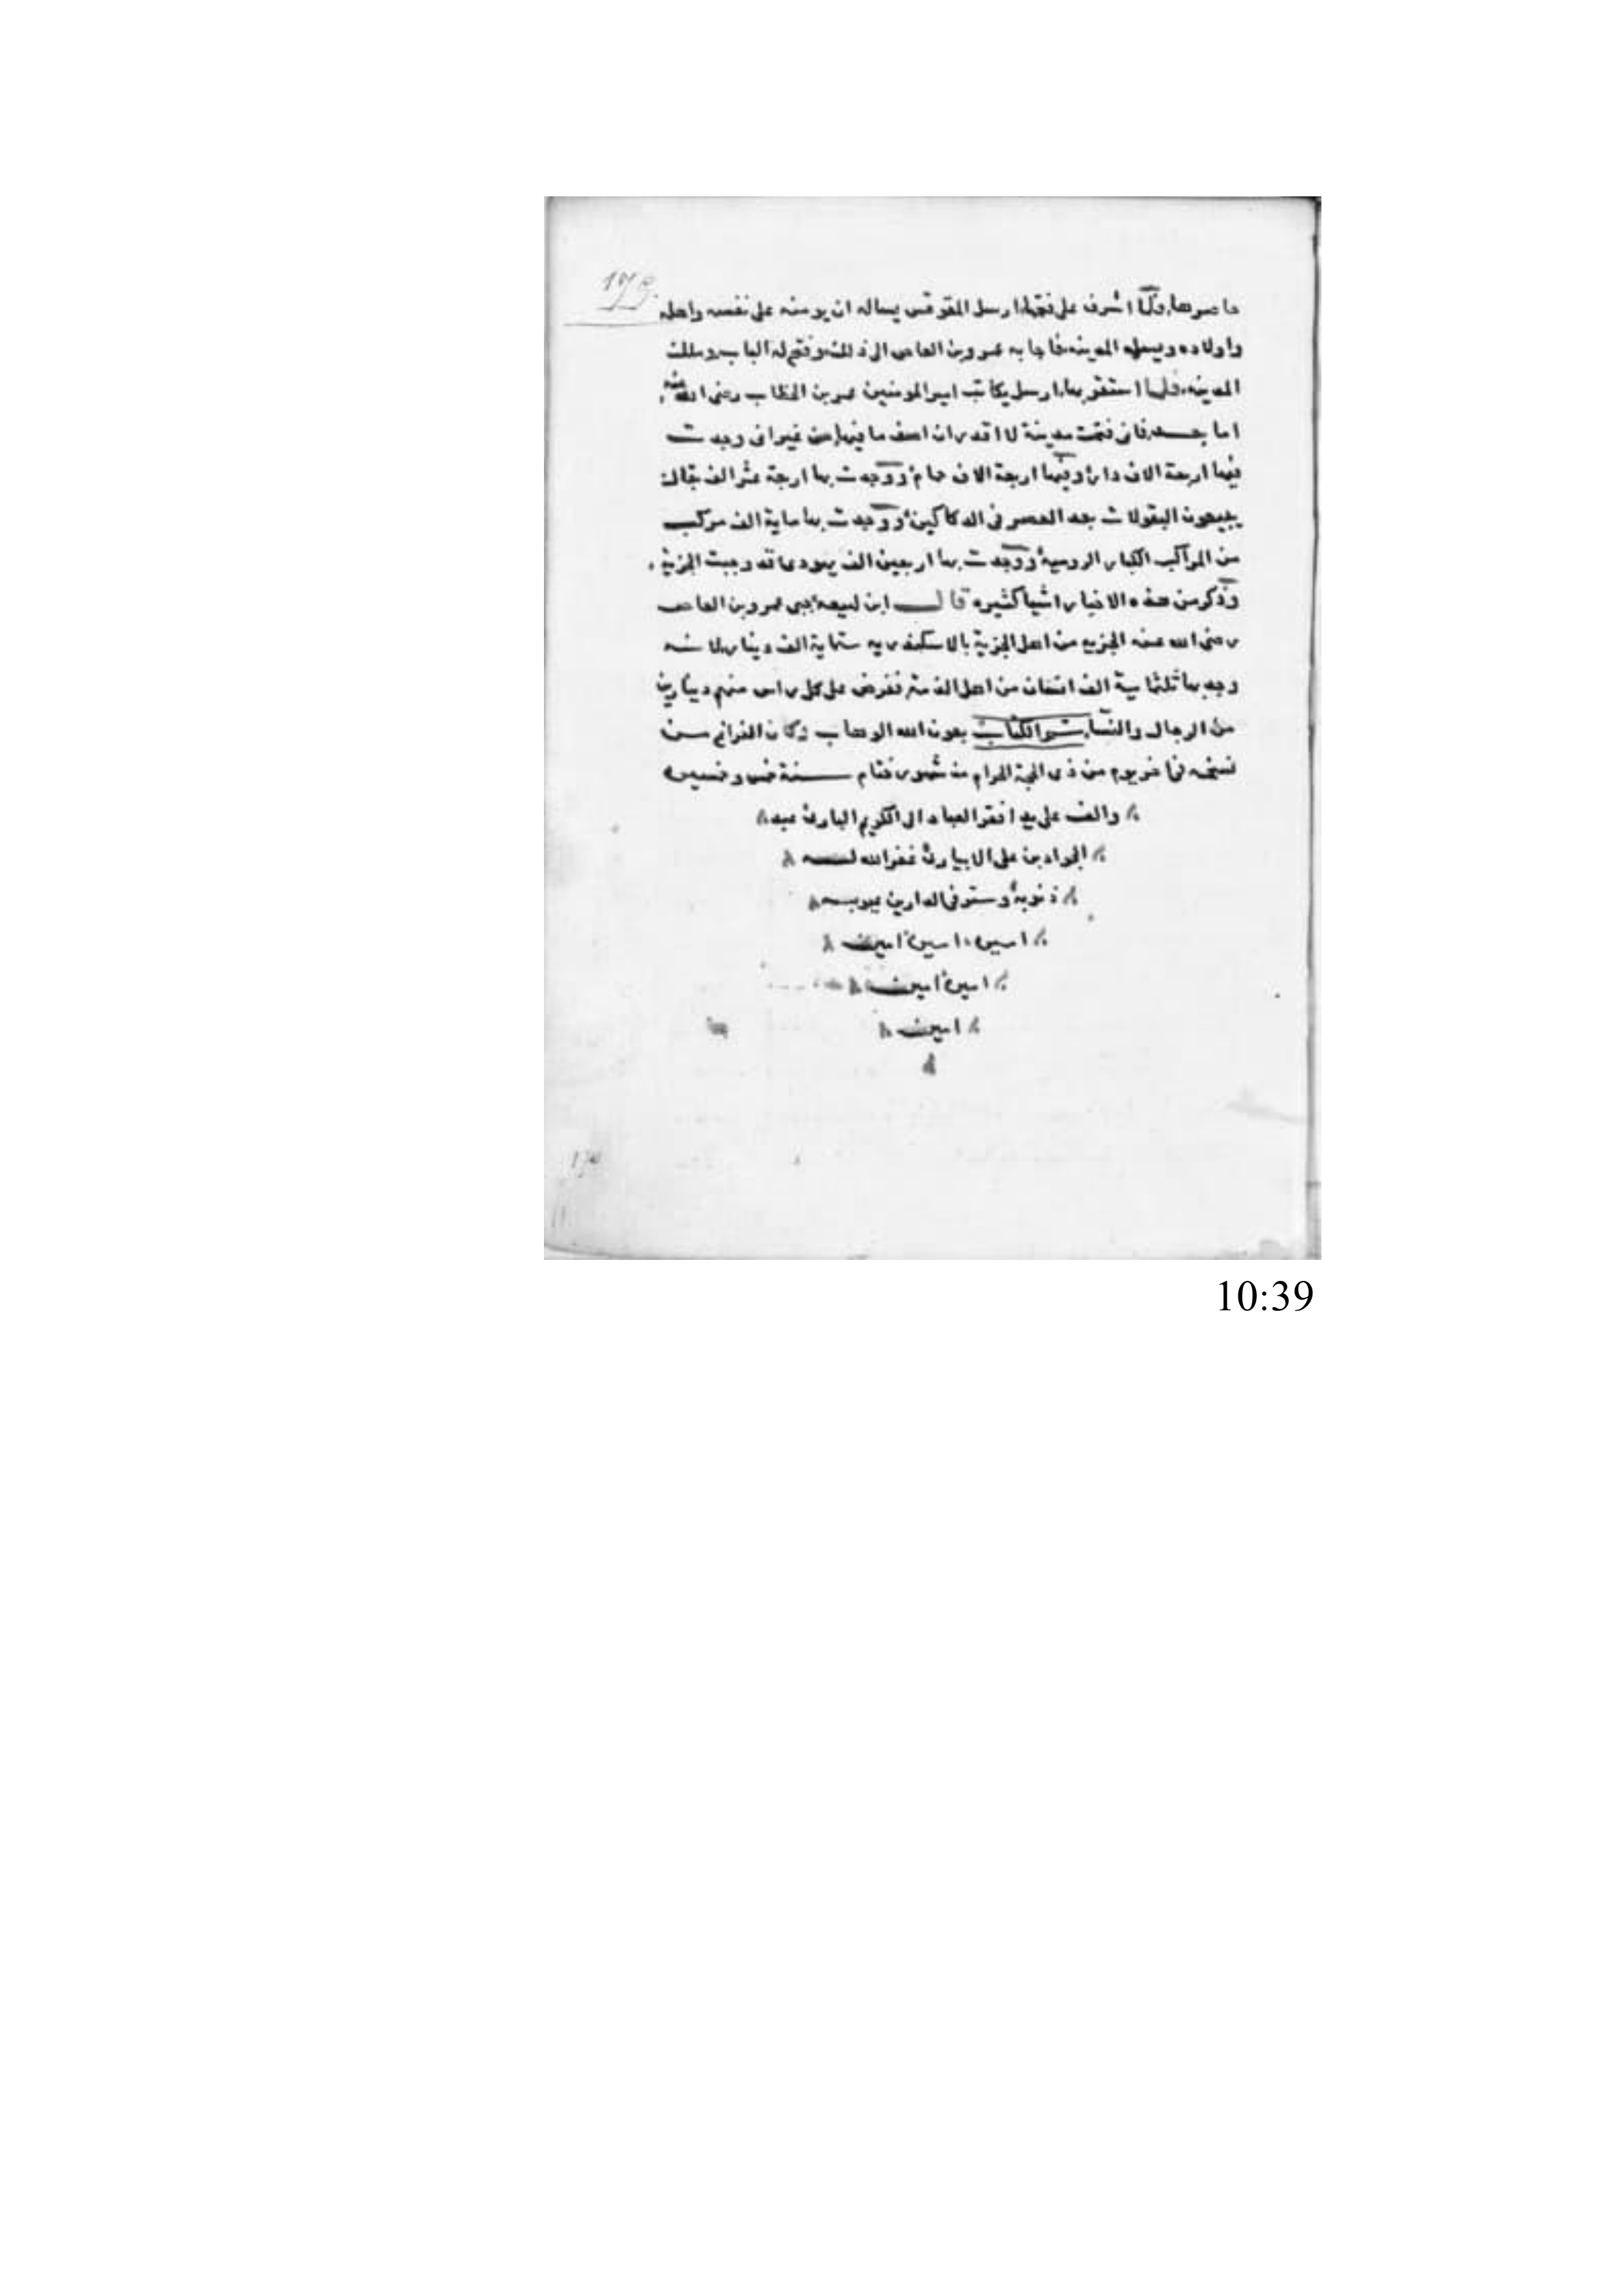 179
حاصرها، ولما اشرف على فتحها، ارسل المقوقس يساله ان يومنه على نفسه واهله
واولاده ويسلمه المدينه، فاجابه عمرو بن العاص الى ذلك، وفتح له الباب وملك
المدينه، فلما استقر بها، ارسل يكاتب امير المومنين عمر بن الخطاب رضى الله عنه،
اما بعد، فانى فتحت مدينة لا اقدر ان اصف ما فيها، من غير انى وجدت
فيها اربعة الاف دار، وفيها اربعة الاف حمام، ووجدت بها اربعة عشر الف بقال
يبيعون البقولات بعد العصر فى الدكاكين، ووجدت بها ماية الف مركب
من المراكب الكبار الروسية، ووجدت بها اربعين الف يهودى قد وجبت الجزية،
وذكر من هذه الاخبار اشيا كثيره قال ابن لهيعه، جبى عمرو بن العاص
رضى الله عنه الجزيه من اهل الجزية بالاسكندريه ستماية الف دينار، لانه
وجد بها ثلثماية الف انسان من اهل الذمة، ففرض على كل راس منهم دينارين
من الرجال والنسا، تم الكتاب بعون الله الوهاب وكان الفراغ من
نسخه فى اخر يوم من ذى الحجة الحرام من شهور ختام سنة خمس وخمسين
والف على يد افقر العباد الى الكريم البارى عبد
الجواد بن على الابيارى غفر الله له
ذنوبه، وستر فى الدارين عيوبه
امين، امين، امين
امين، امين
امين
10:39